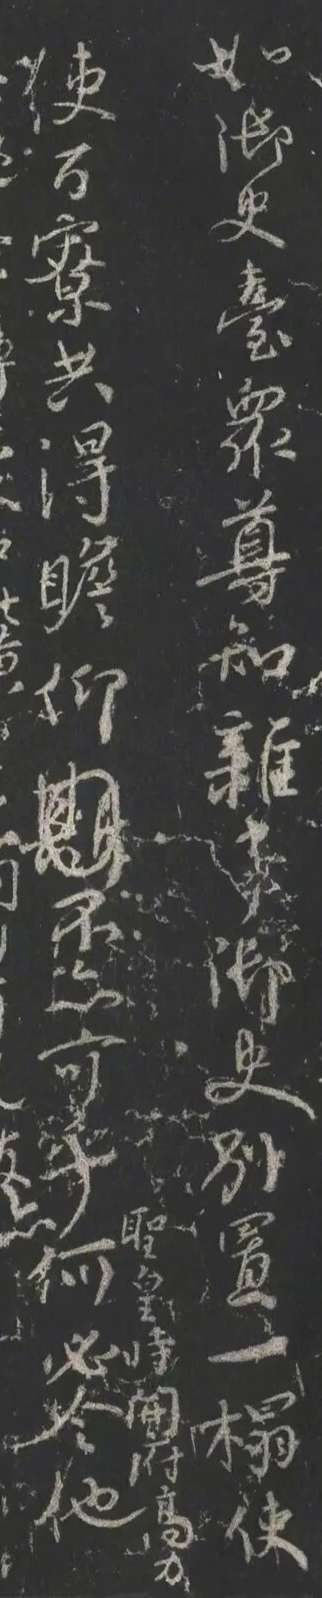 如御史臺衆尊知雜事御史別置一榻使
聖皇時開府高力
使百寮共得瞻仰不亦可乎何必令他